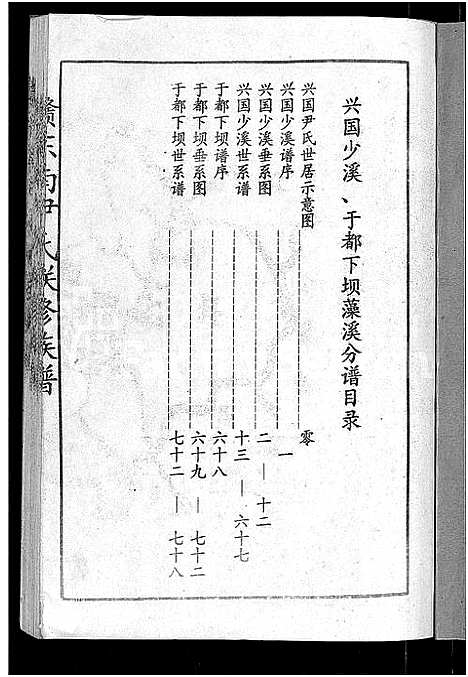 兴国少溪、于都下坝藻溪分谱目录
兴国尹氏世居示意图 零
兴国少溪谱序 一
兴国少溪垂系图 二—十二
兴国少溪世系谱 十三—六十七
于都下坝谱序 六十八
于都下坝垂系图 六十九—七十二
于都下坝世系谱 七十二—七十八
赣东南尹氏联修族谱